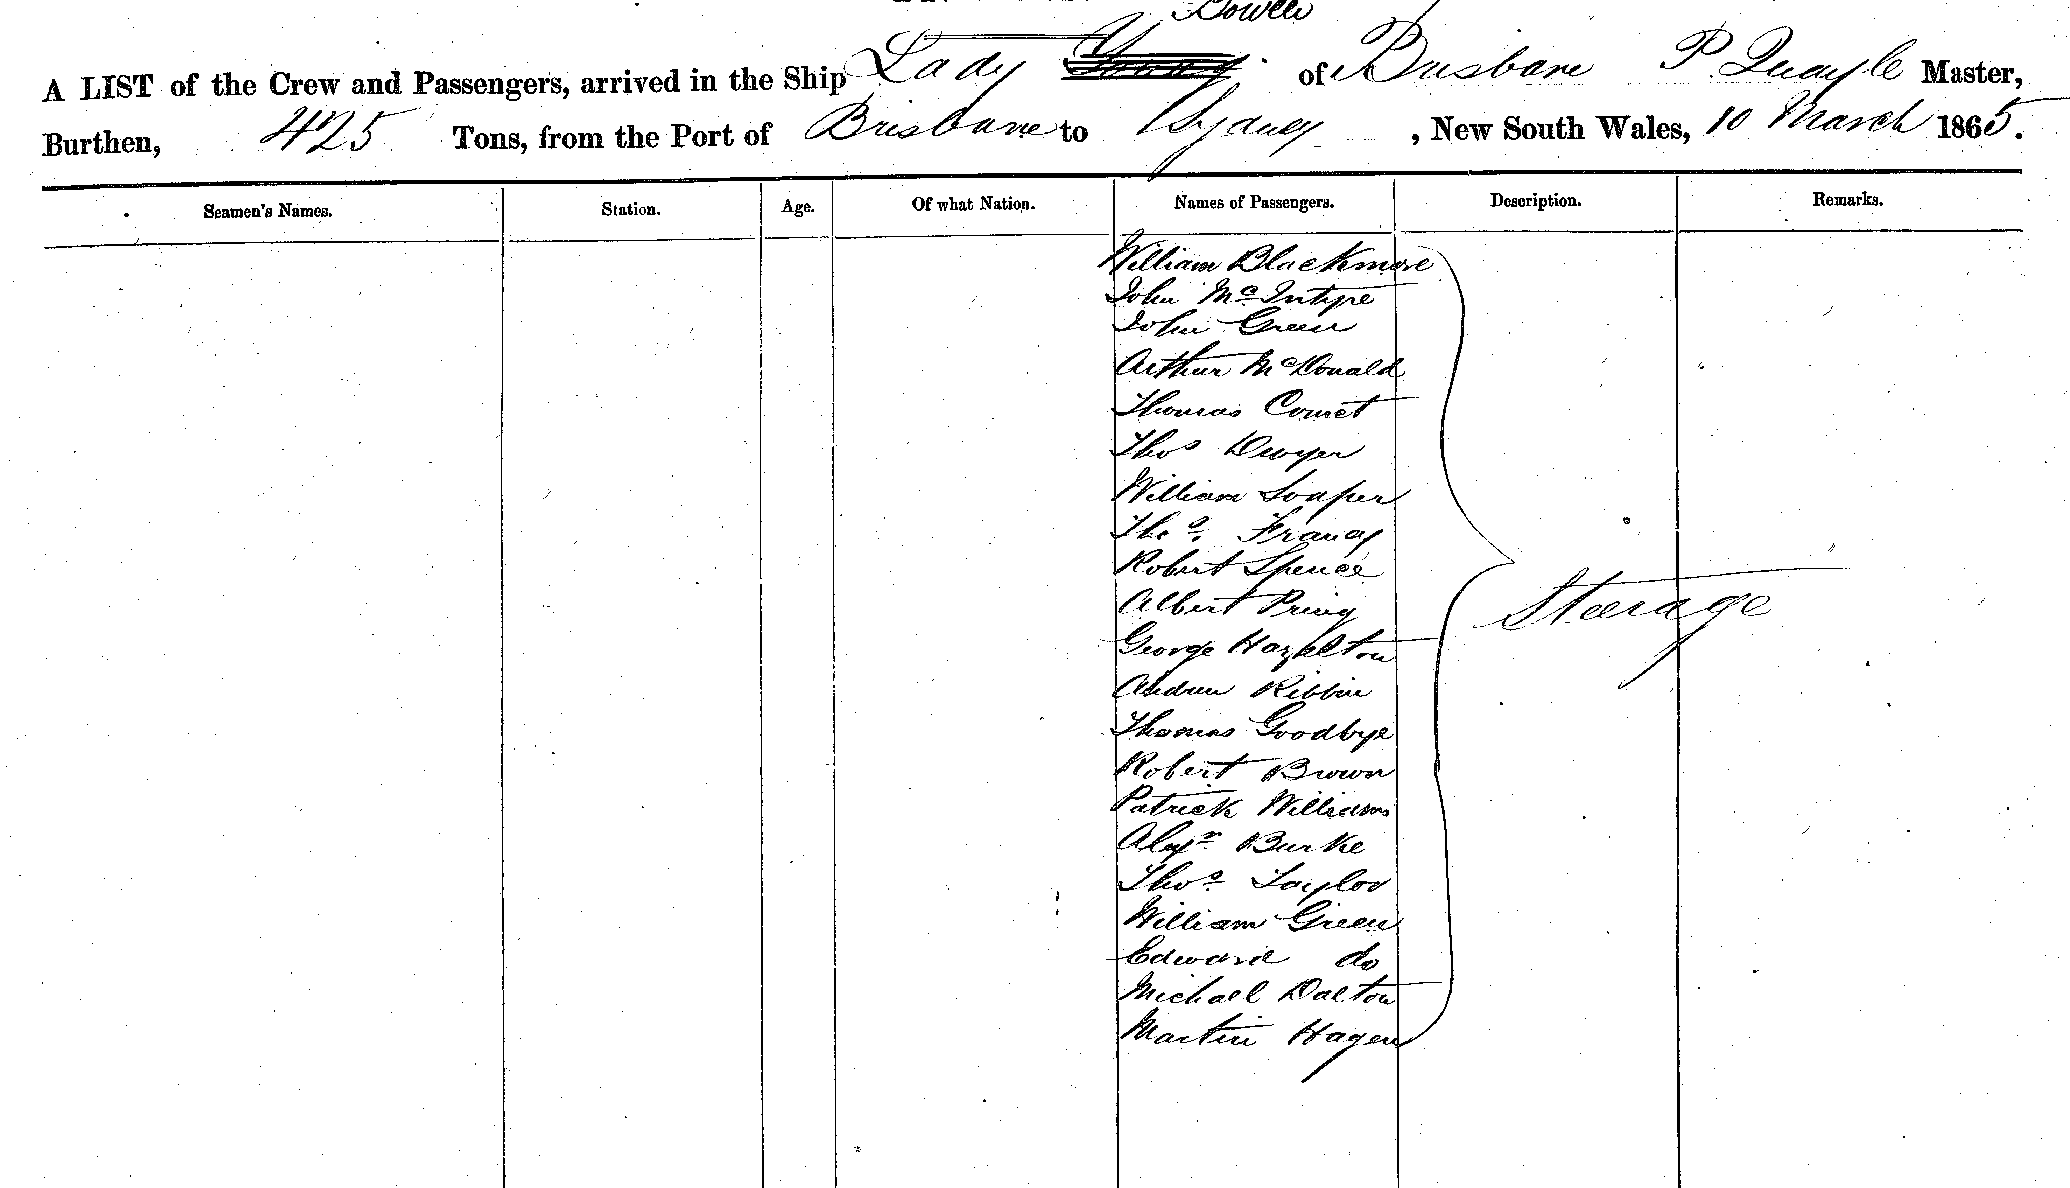 Bowen
A LIST of the Crew and Passengers, arrived in the Ship Lady Young of Brisbane P. Quayle Master,
Burthen, 425 Tons, from the Port of Brisbane to Sydney, New South Wales, 10 March 1865.
Seamen's Names. Station. Age. Of what Nation. Names of Passengers. Description. Remarks.
William Blackmore
John McIntyre
John Green
Arthur McDonald
Thomas Comet
Thos Dwyer
William Soaper
Thos. Francis
Robert Spence
Albert Pring
George Hazelton
Andrew Ribbin
Thomas Goodbye
Robert Brown
Patrick Williams
Alexr Burke
Thos. Taylor
William Green
Edward do
Michael Dalton
Martin Hagen
Steerage